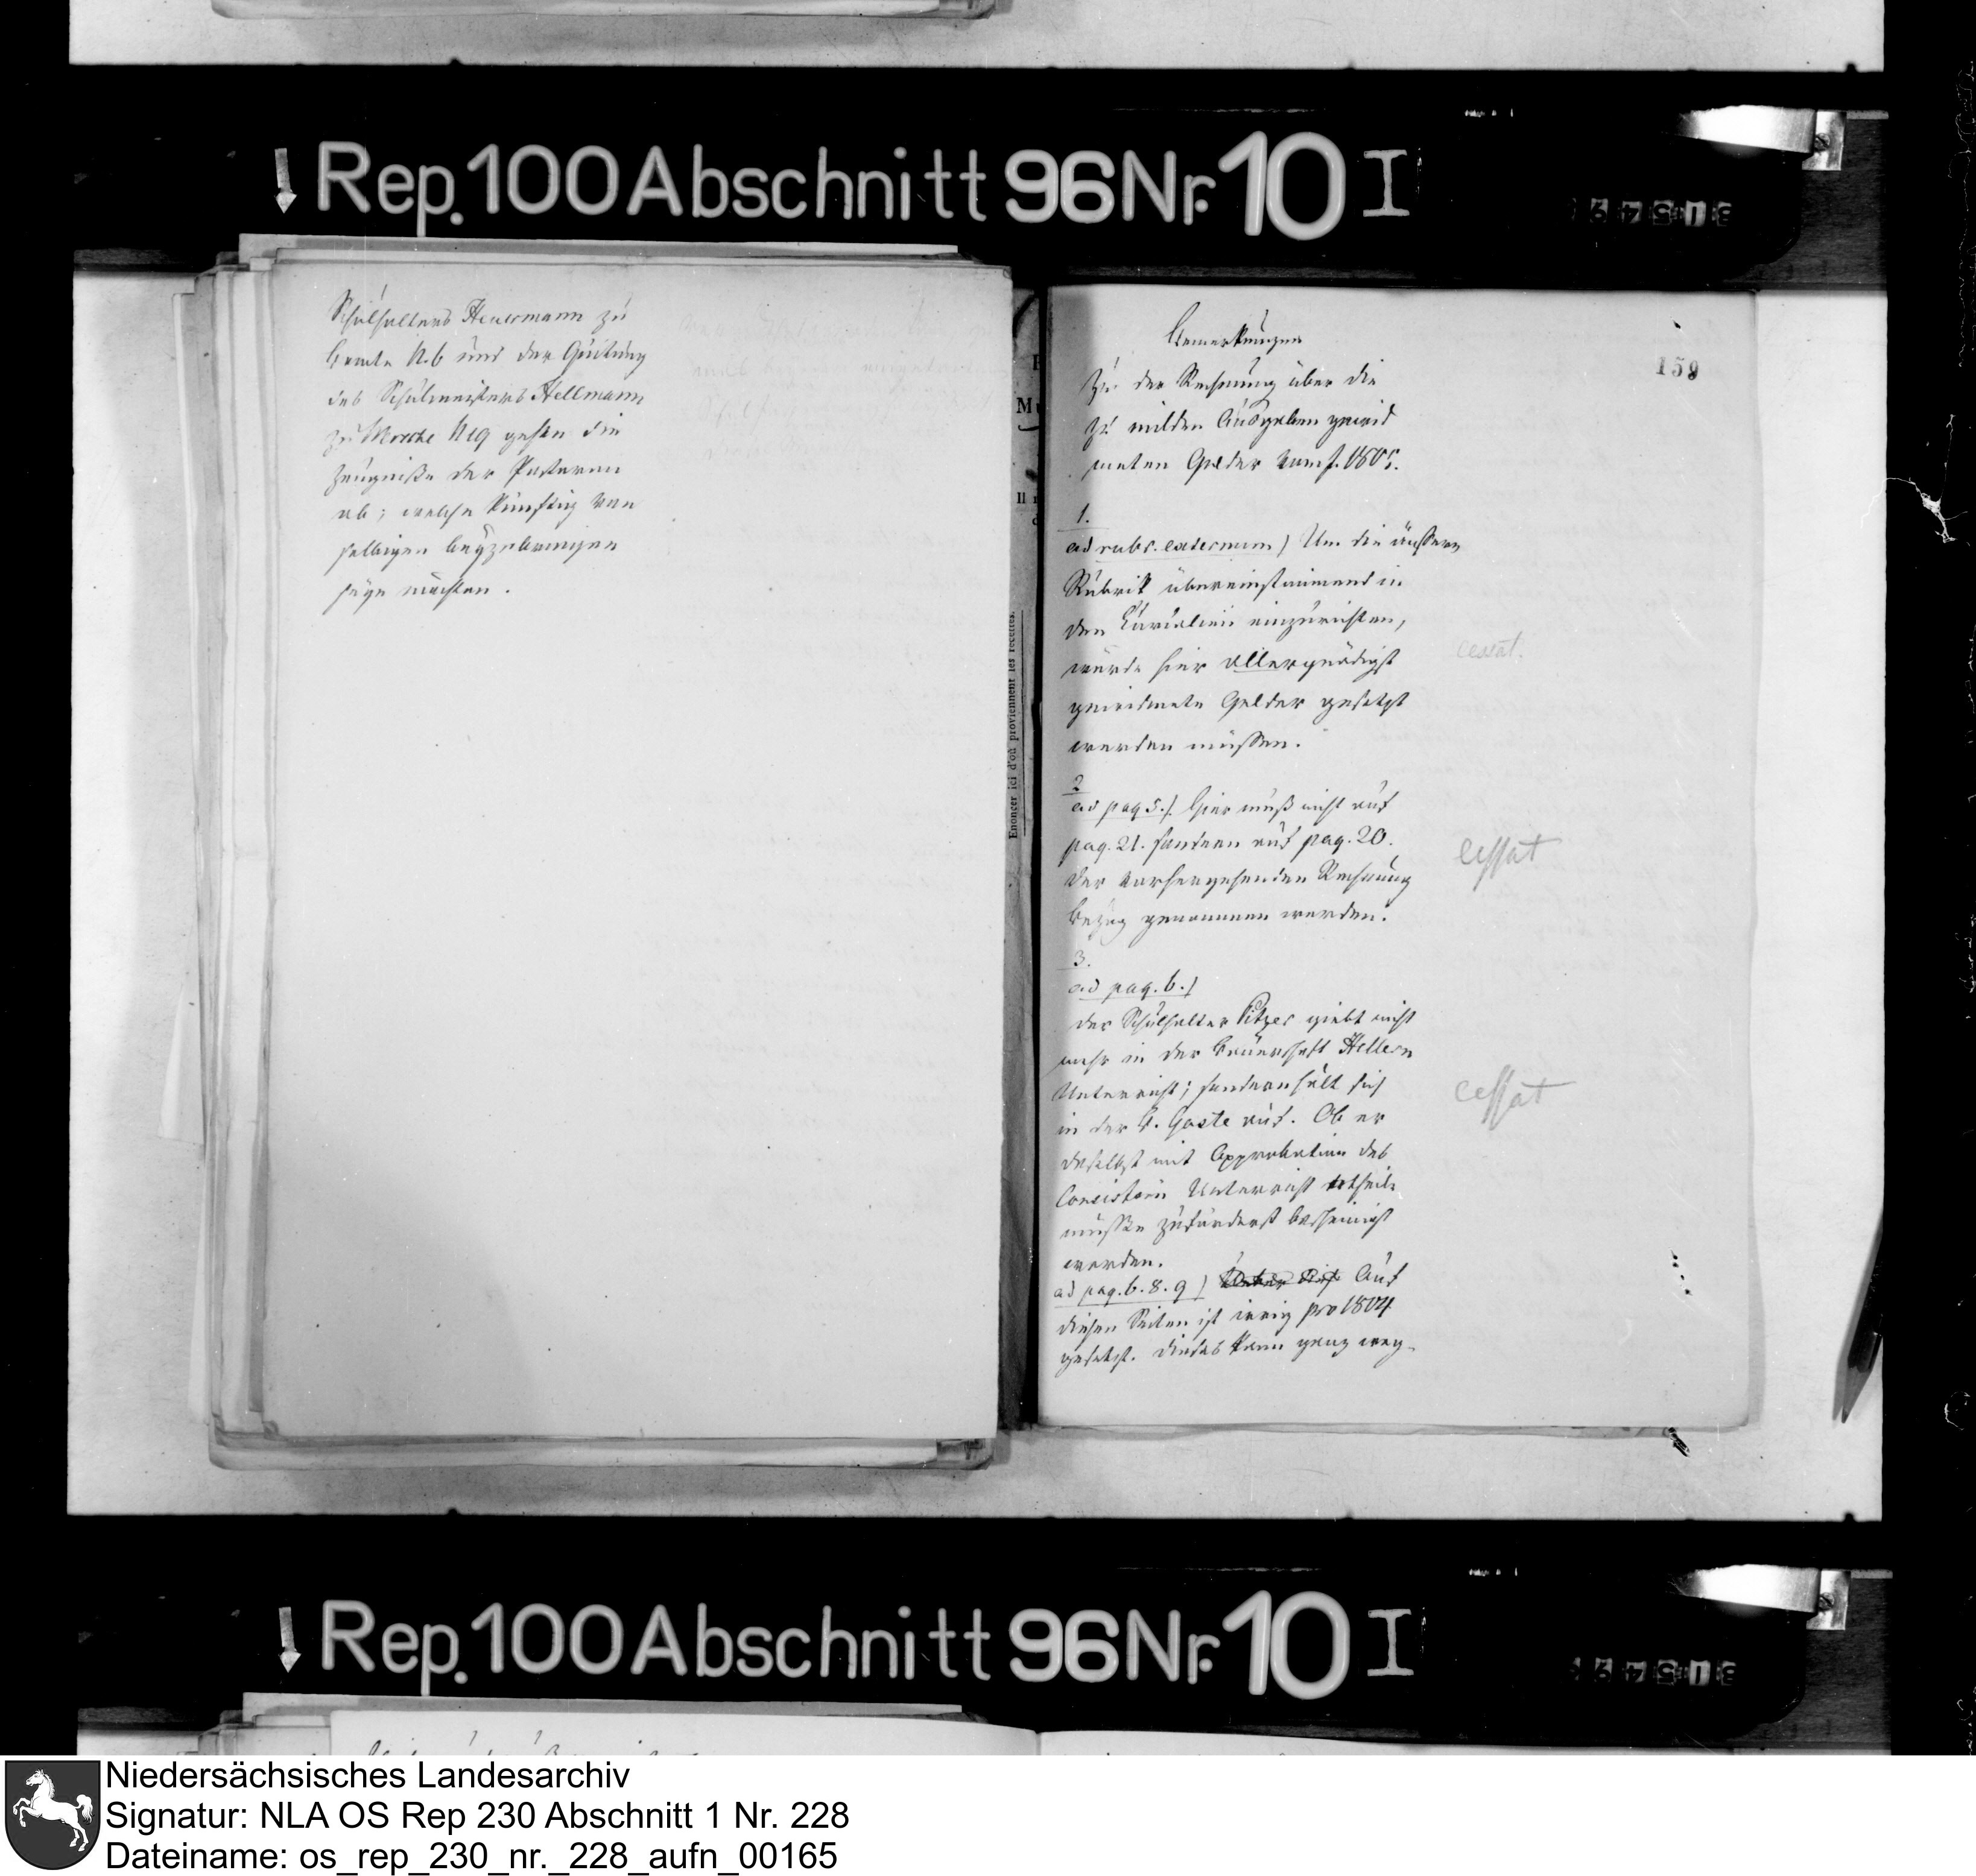 Rep. 100 Abschnitt 96 Nr. 10 I
31549
Schulhalters Heuermann zu
N. 6 und der Quitung
des Schulmeisters Hellmann
zu N 19 gehen die
Zeugniße der Pastoren
ab; welche künftig von
selbigen beyzubringen
seyn möchten.
159
Bemerkungen
Zu der Rechnung über die
zu milden Ausgaben gewid
meten Gelder vom J. 1805.
1.
ad rubr. externam) Um die äußere
Rubrik übereinstimmend in
den Curialien einzurichten,
würde hier allergnädigst
gewidmete Gelder gesetzt
werden müssen.
cessat.
2
ad pag 5.) Hier muß nicht auf
pag. 21. sondern auf pag. 20.
der vorhergehenden Rechnung
Bezug genommen werden.
cessat
3.
ad pag. 6.)
der Schulhalter Pitzer giebt nicht
mehr in der Bauerschaft Hellern
Unterricht; sondern hält sich
in der B. Gaste auf. Ob er
daselbst mit Approbation des
Consistorii Unterricht ertheile
müßte zuförderst bescheinigt
werden.
cessat
ad pag. 6. 8. 9) Auf
diesen Seiten ist irrig pro 1804
gesetzt. dieses kann ganz weg-
Enoncer ici d'où proviennent les recettes.
Rep. 100 Abschnitt 96 Nr. 10 I
31549
Niedersächsisches Landesarchiv
Signatur: NLA OS Rep 230 Abschnitt 1 Nr. 228
Dateiname: os_rep_230_nr._228_aufn_00165